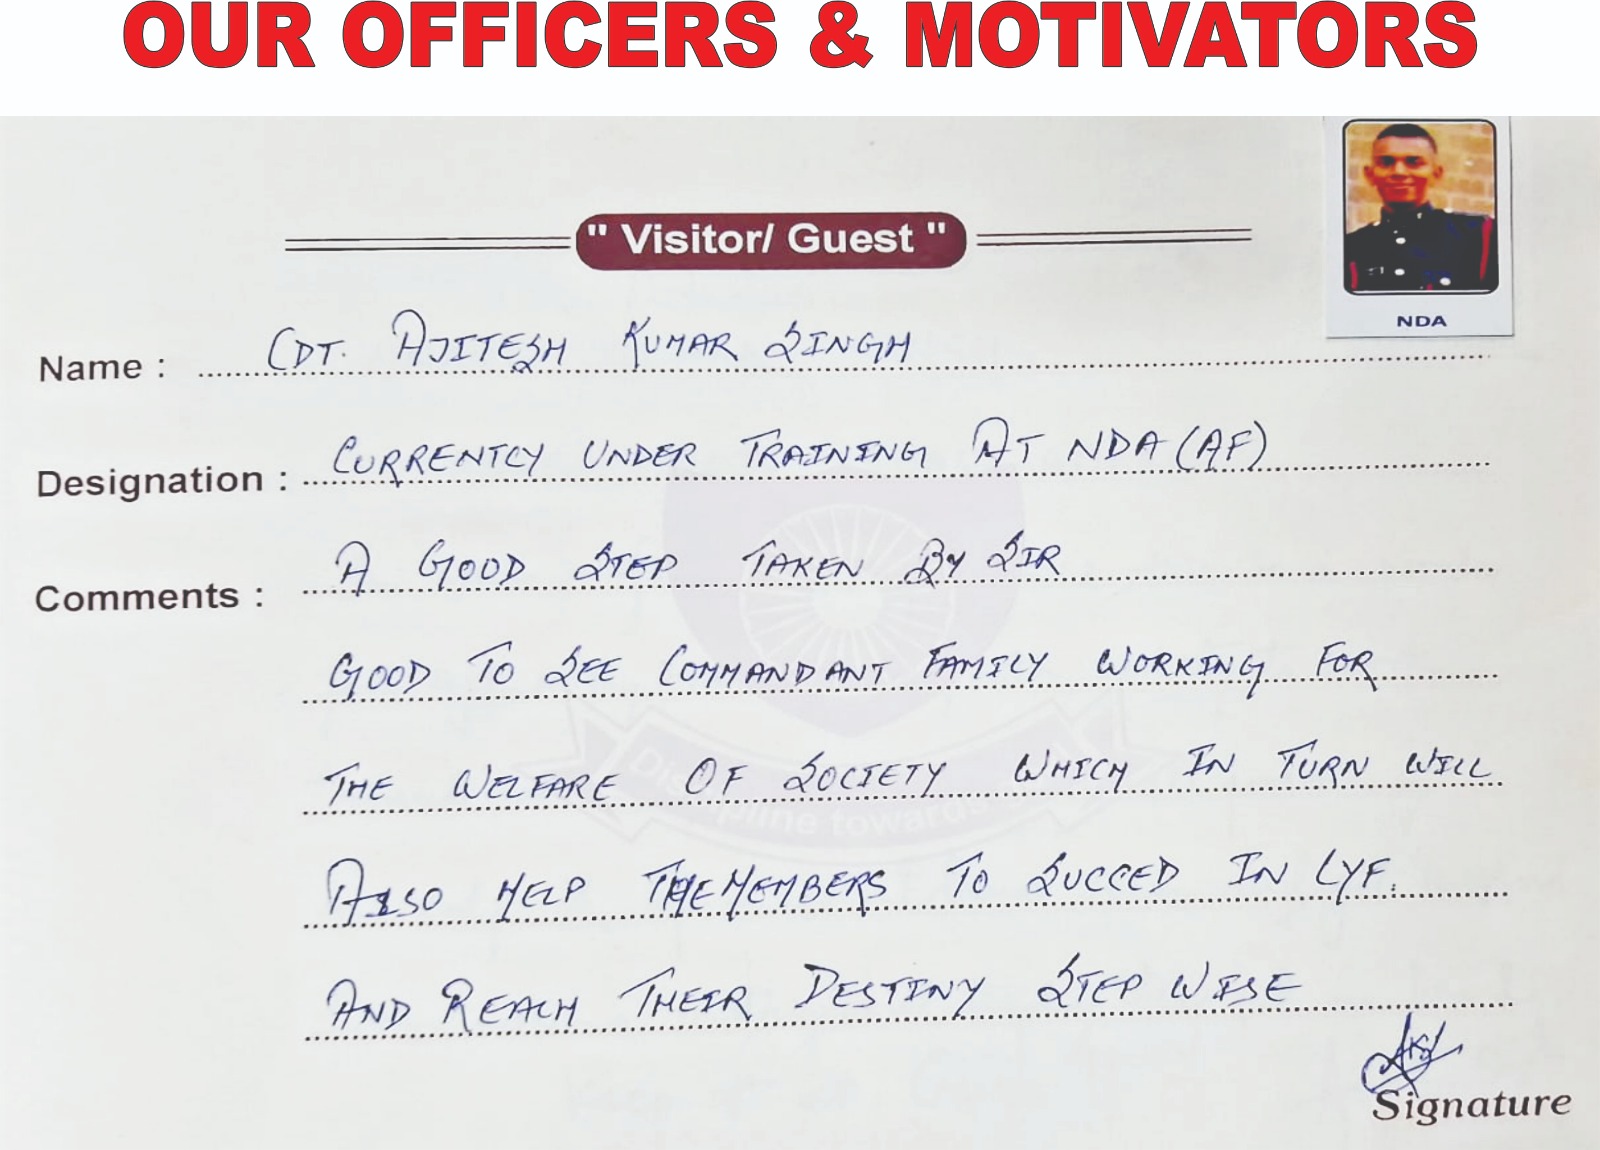 OUR OFFICERS & MOTIVATORS
" Visitor/ Guest "
NDA
Name : CDT. AJITESH KUMAR SINGH
Designation : CURRENTLY UNDER TRAINING AT NDA (AF)
Comments : A GOOD STEP TAKEN BY SIR
GOOD TO SEE COMMANDANT FAMILY WORKING FOR
THE WELFARE OF SOCIETY WHICH IN TURN WILL
ALSO HELP THE MEMBERS TO SUCCED IN LYF.
AND REACH THEIR DESTINY STEP WISE
Signature